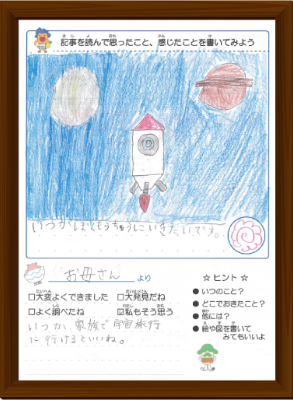 記事を読んで思ったこと、感じたことを書いてみよう
いつかぼくもうちゅうにいきたいです。
お母さん より
☐大変よくできました ☐大発見だね
☐よく調べたね ☑私もそう思う
いつか、家族で宇宙旅行
に行けるといいね。
☆ ヒント ☆
●いつのこと?
●どこでおきたこと?
●他には?
●絵や図を書いて
みてもいいよ